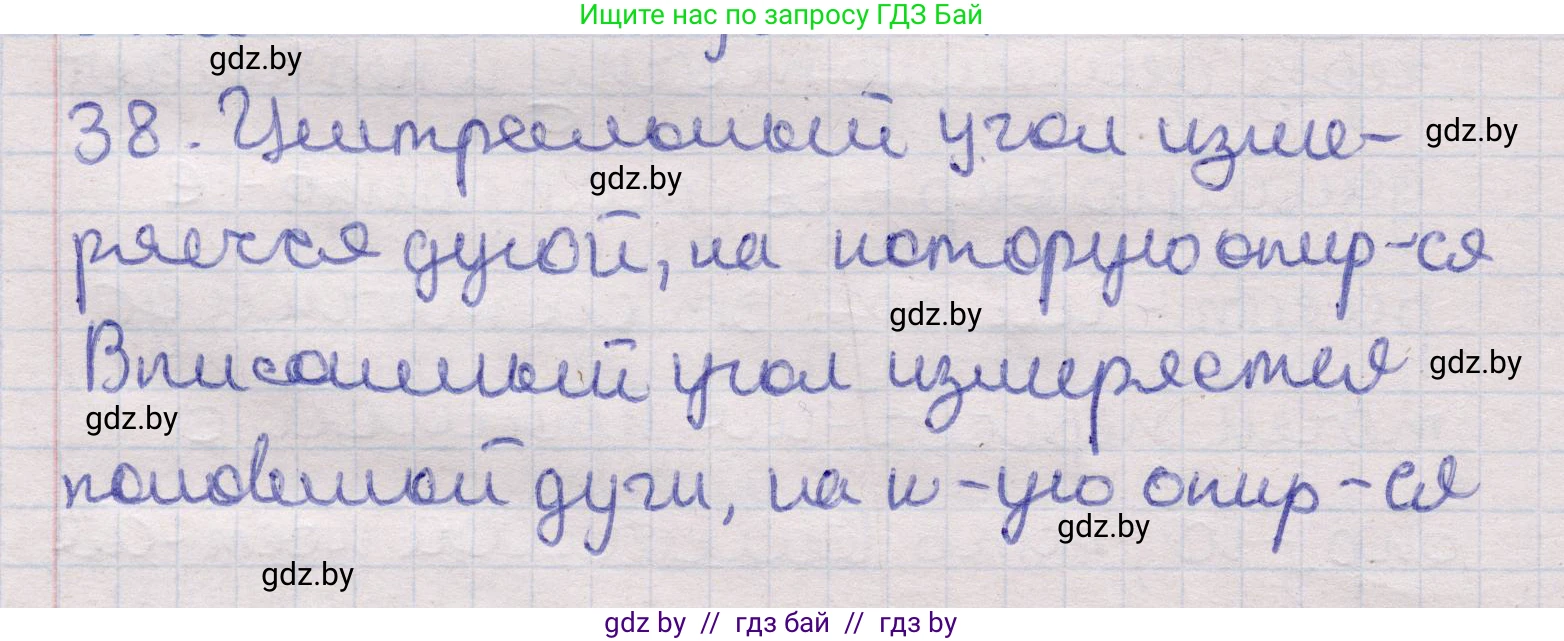 Ищите нас по запросу ГДЗ Бай
gdz.by
38. Центральный угол изме- gdz.by
gdz.by
ряется дугой, на которую опир-ся
gdz.by
Вписанный угол измеряется gdz.by
gdz.by
половиной дуги, на к-ую опир-ся
gdz.by
gdz.by
gdz by // гдз бай // гдз by